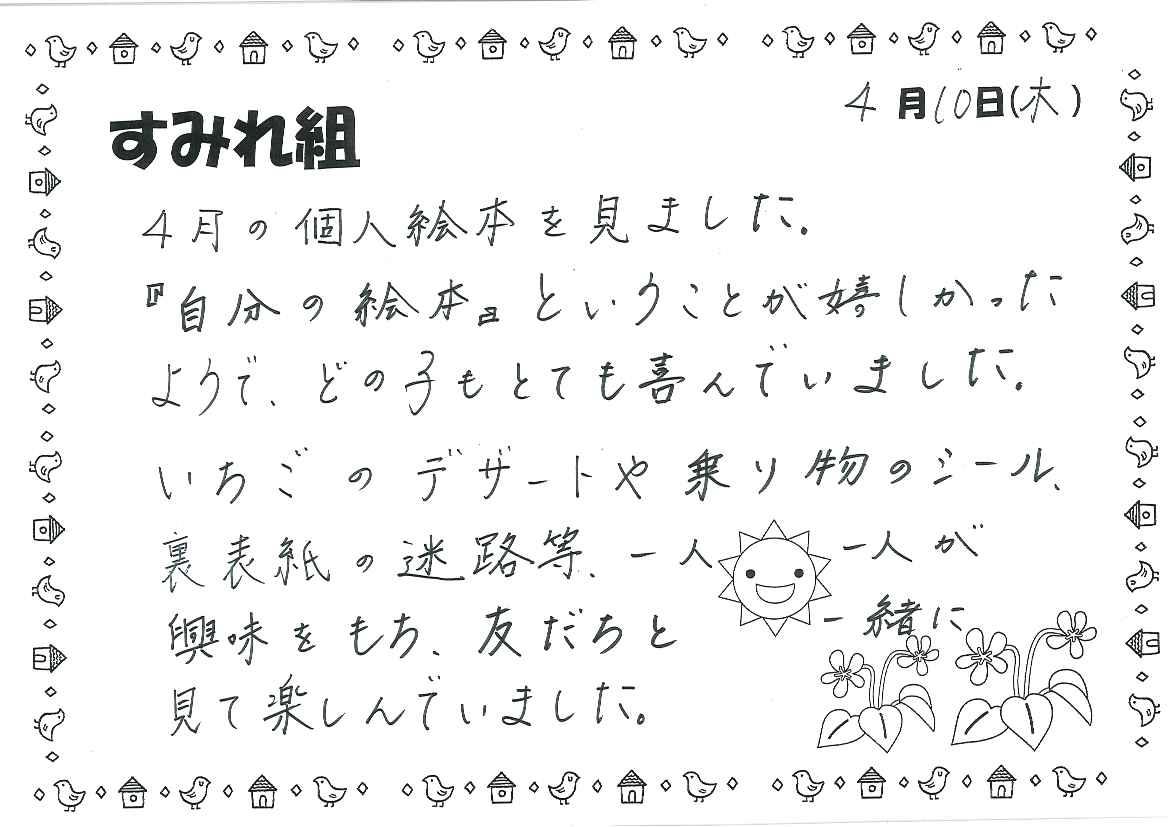 4月10日(木)
すみれ組
4月の個人絵本を見ました。
『自分の絵本』ということが嬉しかった
ようで、どの子もとても喜んでいました。
いちごのデザートや乗り物のシール、
裏表紙の迷路等、一人一人が
興味をもち、友だちと一緒に
見て楽しんでいました。